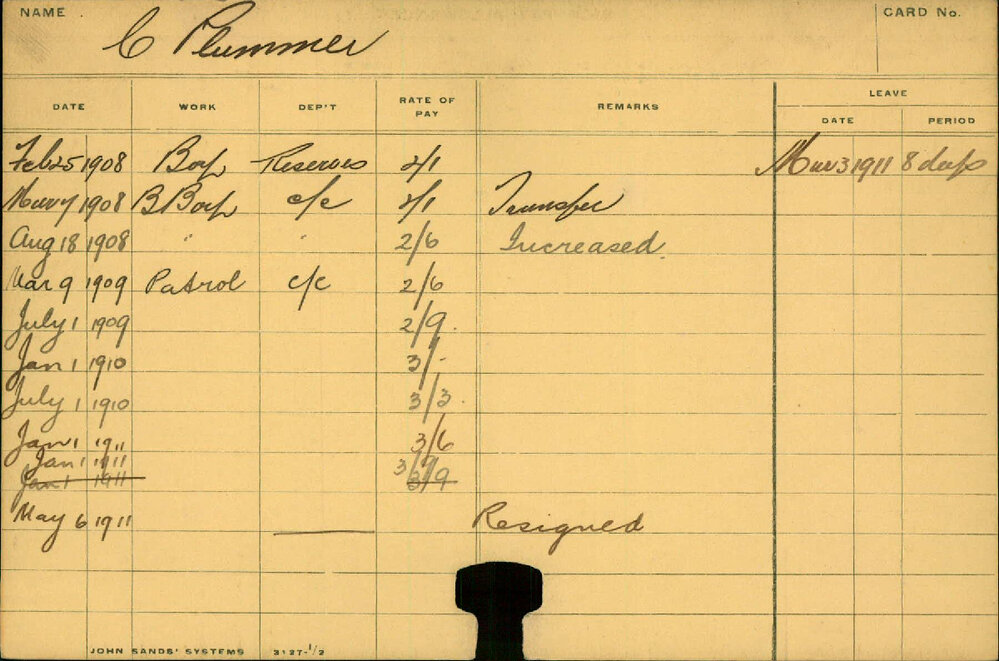 NAME C Plummer CARD No.
LEAVE
DATE WORK DEP'T RATE OF PAY REMARKS DATE PERIOD
Feb 25 1908 Boy Reserves 2/1 Mar 3 1911 8 days
Mar 7 1908 B Boy c/c 2/1 Transfer
Aug 18 1908 " " 2/6 Increased
Mar 9 1909 Patrol c/c 2/6
July 1 1909 2/9
Jan 1 1910 3/-
July 1 1910 3/3
Jan 1 1911 3/6
Jan 1 1911 3/9
Jan 1 1911 3/9
May 6 1911 Resigned
JOHN SANDS' SYSTEMS 3127-1/2